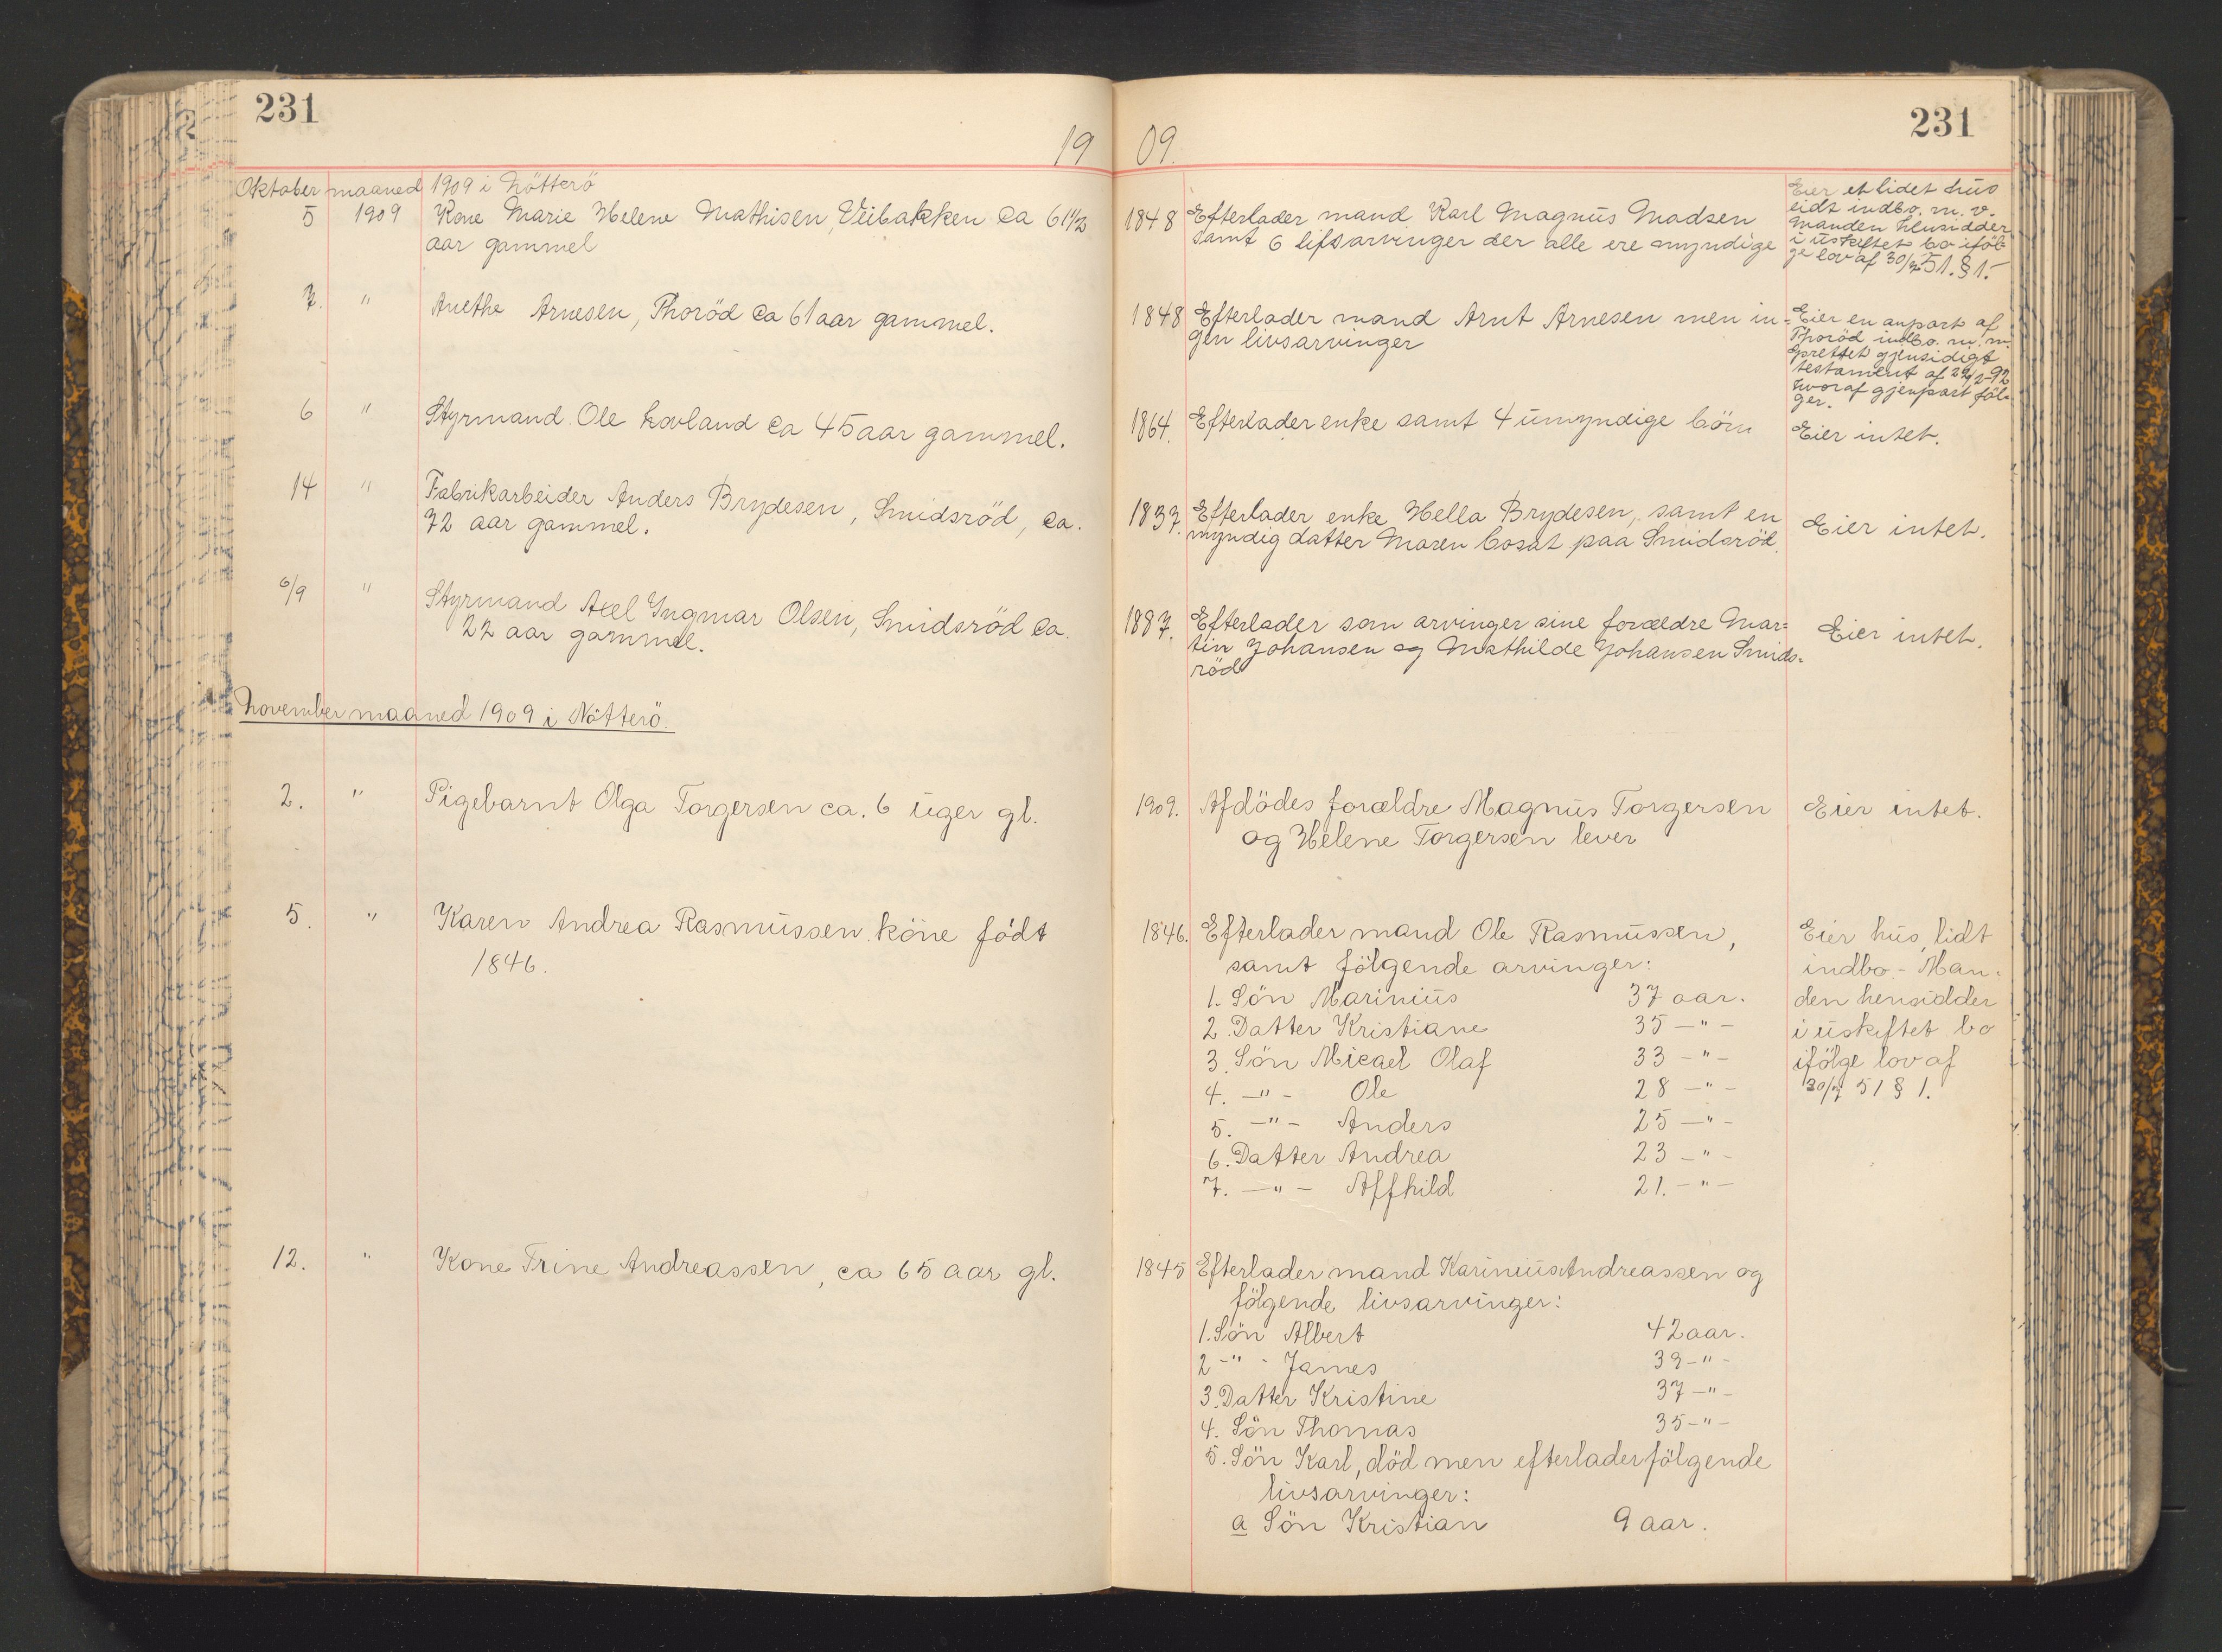 231
19
Oktober maaned 1909 i Nötterö
5 1909 Kone Marie Helene Mathisen, Veibakken Ca 61 1/2
aar gammel
7. " Anethe Arnesen, Thoröd Ca 61 aar gammel.
6 " Styrmand Ole Hovland Ca 45 aar gammel.
14 " Fabrikarbeider Anders Brydesen, Smidsröd, Ca.
72 aar gammel.
6/9 " Styrmand Axel Yngmar Olsen, Smidsröd Ca.
22 aar gammel.
November maaned 1909 i Nötterö.
2. " Pigebarnt Olga Torgersen ca. 6 uger gl.
5. " Karen Andrea Rasmussen köne födt
1846.
12. " Kone Trine Andreassen, ca 65 aar gl.
09.
231
1848 Efterlader mand Karl Magnus Madsen
samt 6 lifsarvinger der alle ere myndige
Eier et lidet hus
lidt indbo. m. v.
Manden hensidder
i uskiftet bo iföl-
ge lov af 30/7 51. § 1.-
1848 Efterlader mand Arnt Arnesen men in=
gen livsarvinger
Eier en anpart af
Thoröd indbo. m. m.
Oprettet gjensidigt
testament af 22/2-92
hvoraf gjenpart föl-
ger.
1864. Efterlader enke samt 4 umyndige börn
Eier intet.
1837. Efterlader enke Hella Brydesen, samt en
myndig datter Maren bosat paa Smidsröd.
Eier intet.
1887. Efterlader som arvinger sine forældre Mar=
tin Johansen og Mathilde Johansen Smids=
röd
Eier intet.
1909. Afdödes forældre Magnus Torgersen
og Helene Torgersen lever
Eier intet.
1846. Efterlader mand Ole Rasmussen,
samt fölgende arvinger:
1. Sön Marinius 37 aar.
2. Datter Kristiane 35 -"-
3. Sön Micael Olaf 33 -"-
4. -"- Ole 28 -"-
5. -"- Anders 25 -"-
6. Datter Andrea 23 -"-
7. -"- Affhild 21. -"-
Eier hus, lidt
indbo - Man-
den hensidder
i uskiftet bo
ifölge lov af
30/7 51 § 1.
1845 Efterlader mand Karinius Andreassen og
fölgende livsarvinger:
1. Sön Albert 42 aar.
2 -"- James 39 -"-
3. Datter Kristine 37 -"-
4. Sön Thomas 35 -"-
5. Sön Karl, död men efterlader fölgende
livsarvinger:
a Sön Kristian 9 aar.